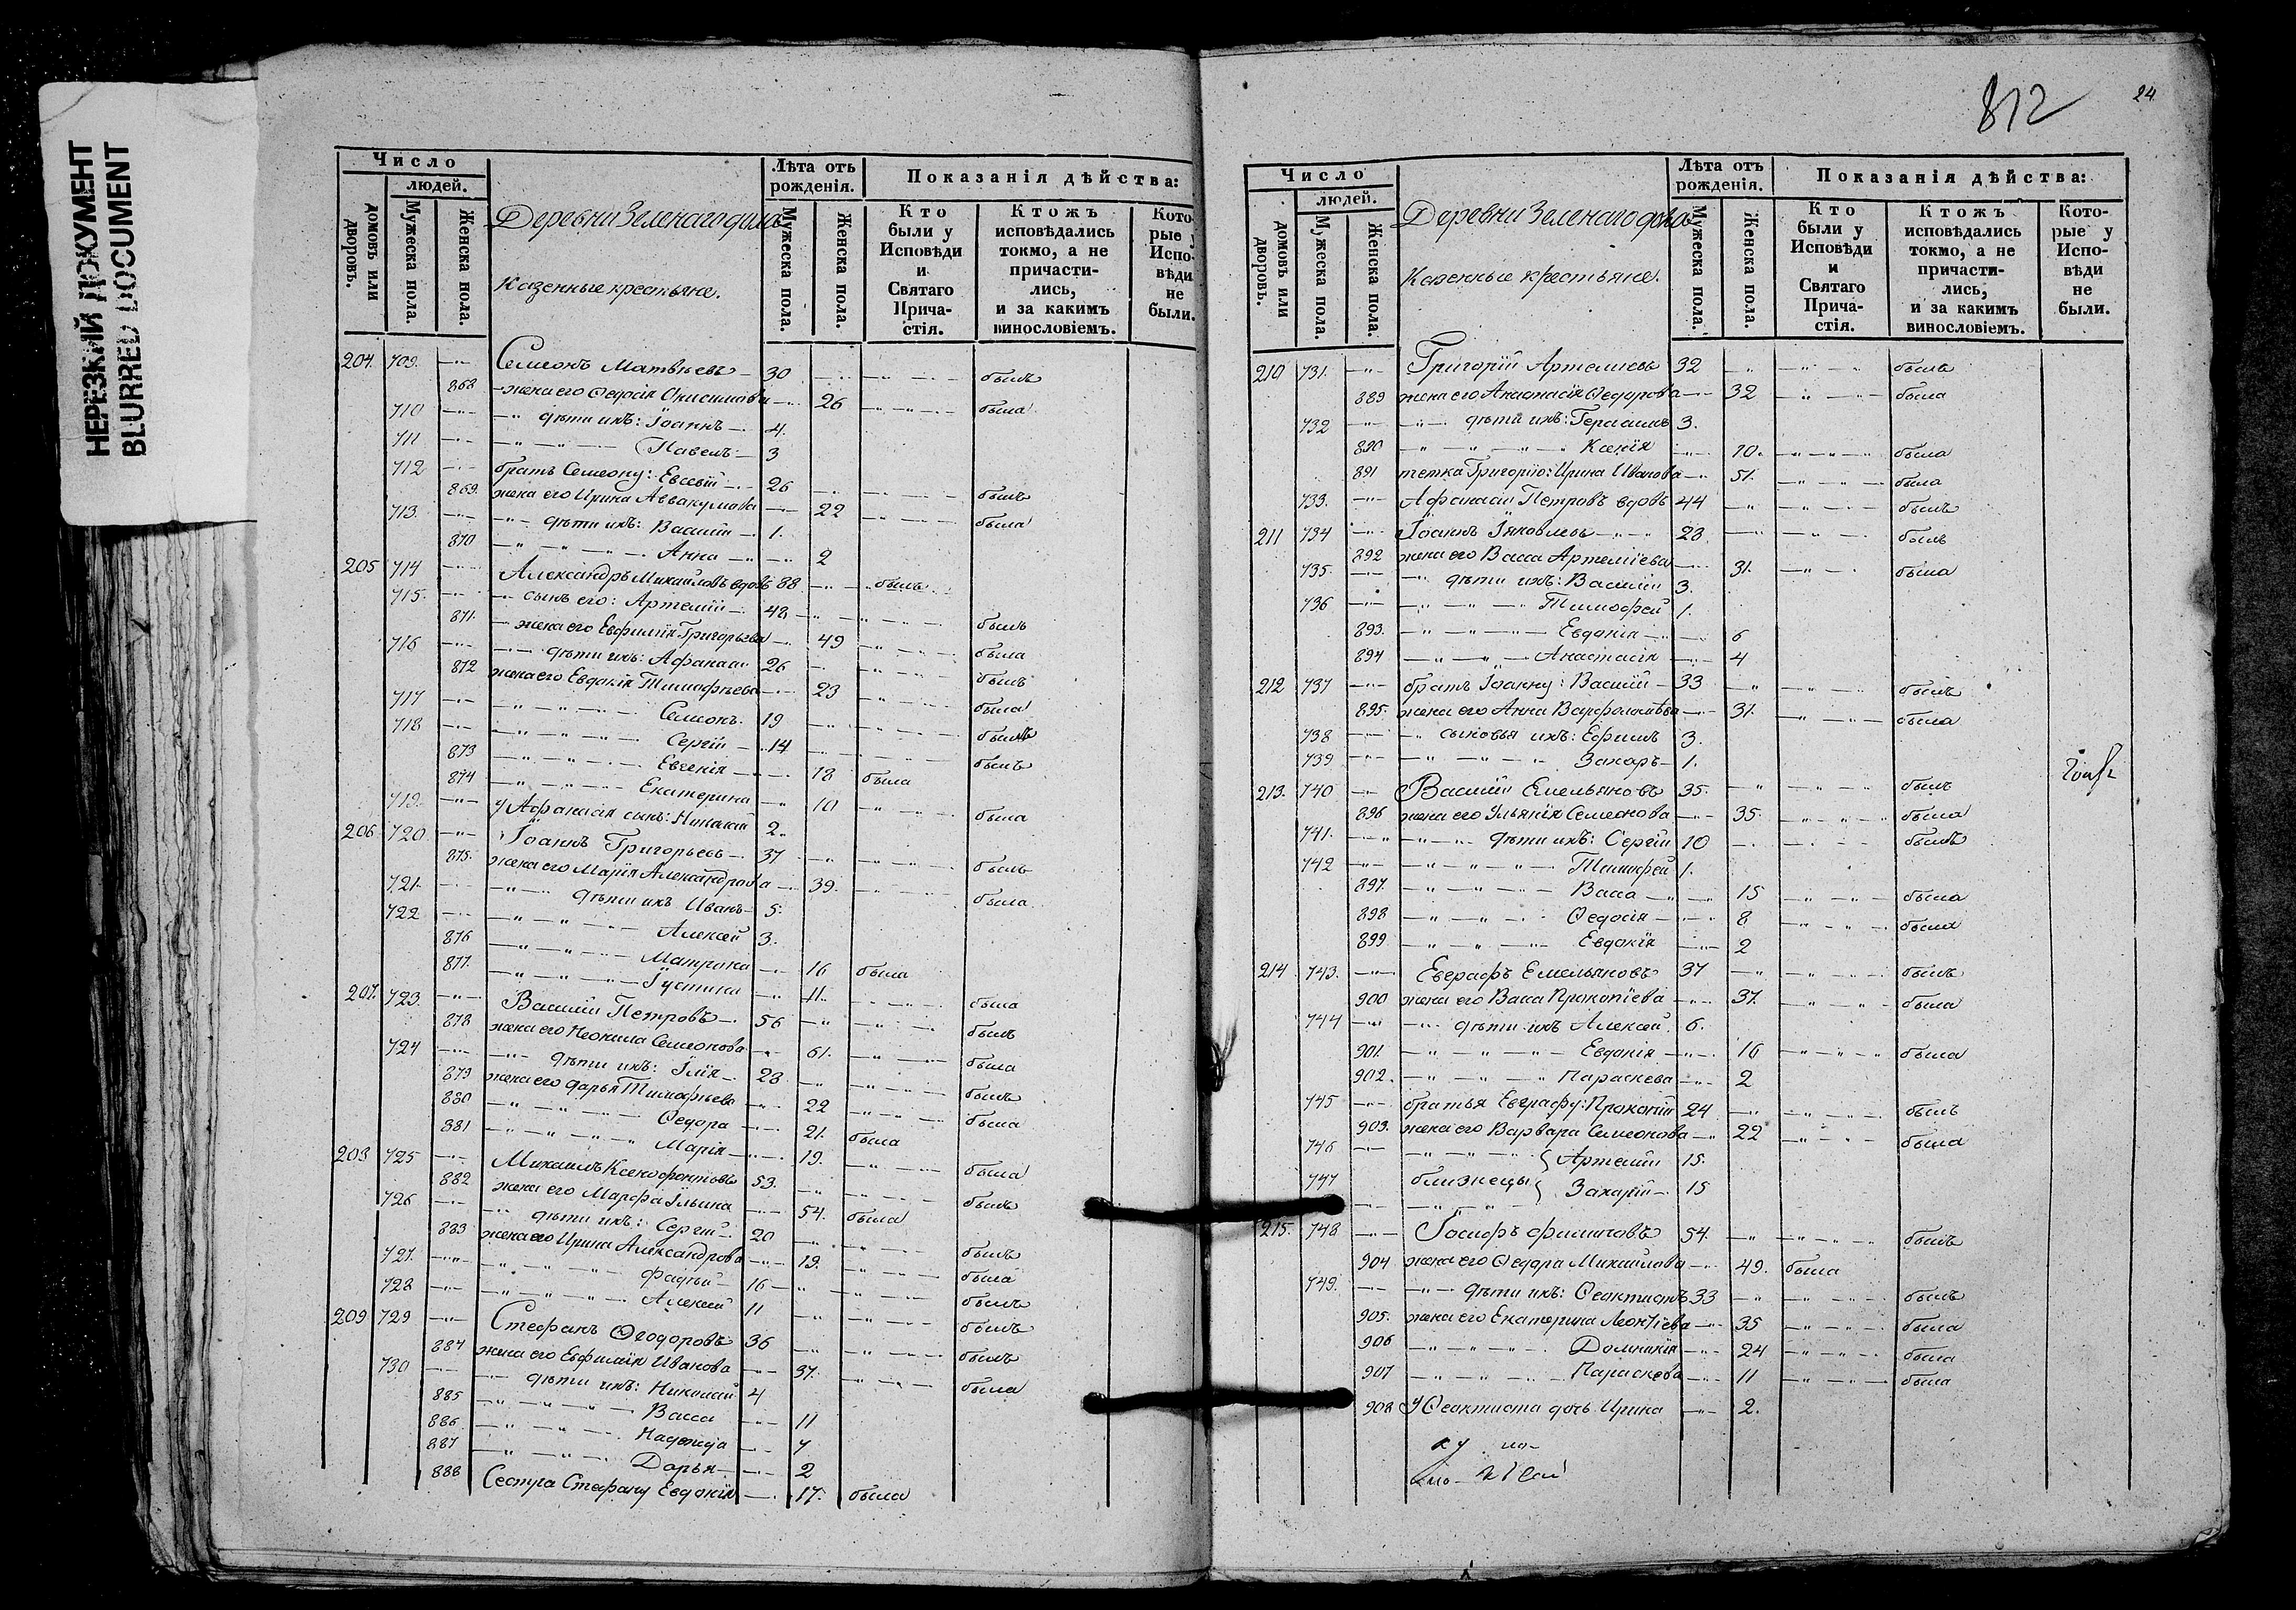 НЕРЕЗКИЙ ДОКУМЕНТ
BLURRED DOCUMENT
Число
людей.
домовъ или дворовъ.
Мужеска пола.
Женска пола.
Деревни
Казенные крестьяне.
Лѣта отъ рожденія.
Мужеска пола.
Женска пола.
Показанія дѣйства:
Кто были у Исповѣди и Святаго Прича-стія.
Ктожъ исповѣдались токмо, а не причасти-лись, и за какимъ винословіемъ.
Кото-рые у Испо-вѣди не были.
204. 709. Семеонъ Матвѣевъ 30 былъ
868 жена его Ѳедосія Онисимова 26 была
710 дѣти ихъ: Іоаннъ 4
711 Павелъ 3
712 братъ Семеону: Евсевій 26 былъ
869. жена его Ирина Аввакумова 22 была
713. дѣти ихъ: Василій 1.
870 Анна 2
205 714 Александръ Михайловъ вдовъ 88 былъ
715. сынъ его: Артемій 48 былъ
871. жена его Евфимія Григорьева 49 была
716 дѣти ихъ: Афанасій 26 былъ
872 жена его Евдокія Тимофѣева 23 была
717 Семеонъ. 19 былъ
718 Сергій 14 былъ
873 Евгенія 18 была
874 Екатерина 10 была
719. у Афанасія сынъ: Николай 2.
206 720 Іоаннъ Григорьевъ 37 былъ
875. жена его Марія Александрова 39. была
721. дѣти ихъ Иванъ 5.
722 Алексѣй 3.
876 Матрона 16 была
877. Іустина 11. была
207. 723. Василій Петровъ 56 былъ
878 жена его Неонила Семеонова 61. была
724 дѣти ихъ: Илія 28 былъ
879 жена его Дарья Тимофѣева 22 была
880 Ѳедора 21. была
881 Марія 19. была
208 725 Михаилъ Ксенофонтовъ 53. былъ
882 жена его Марфа Ильина 54. была
726 дѣти ихъ: Сергій 20 былъ
883 жена его Ирина Александрова 19. была
727. Фадѣй 16 былъ
728 Алексѣй 11 былъ
209 729 Стефанъ Ѳеодоровъ 36 былъ
884 жена его Евфимія Иванова 37. была
730 дѣти ихъ: Николай 4
885 Васса 11
886 Надежда 7
887 Дарья 2
888 Сестра Стефану Евдокія 17. была
812
24
Число
людей.
домовъ или дворовъ.
Мужеска пола.
Женска пола.
Деревни
Казенные крестьяне.
Лѣта отъ рожденія.
Мужеска пола.
Женска пола.
Показанія дѣйства:
Кто были у Исповѣди и Святаго Прича-стія.
Ктожъ исповѣдались токмо, а не причасти-лись, и за какимъ винословіемъ.
Кото-рые у Испо-вѣди не были.
210 731. Григорій Артемьевъ 32 былъ
889 жена его Анастасія Ѳедорова 32 была
732 дѣти ихъ: Герасимъ 3.
890 Ксенія 10. была
891 тетка Григорію: Ирина Иванова 51. была
733. Афанасій Петровъ вдовъ 44 былъ
211 734 Іоаннъ Яковлевъ 28 былъ
892 жена его Васса Артеміева 31. была
735. дѣти ихъ: Василій 3.
736 Тимофей 1.
893. Евдокія 6
894 Анастасія 4
212 737 братъ Іоанну: Василій 33 былъ
895. жена его Анна Варфоломѣева 31. была
738 сыновья ихъ: Ефимъ 3.
739 Захаръ 1.
213. 740 Василій Емельяновъ 35. былъ
896 жена его Ульянія Семеонова 35. была
741. дѣти ихъ: Сергій 10 былъ
742 Тимофей 1.
897. Васса 15 была
898 Ѳедосія 8 была
899 Евдокія 2
214 743. Евграфъ Емельяновъ 37 былъ
900 жена его Васса Прокопіева 37. была
744 дѣти ихъ Алексѣй 6.
901. Евдокія 16 была
902. Параскева 2
745 братья Евграфу: Прокопій 24 былъ
903. жена его Варвара Семеонова 22 была
746 Артемій 15.
747 близнецы Захарій 15
215. 748 Іосифъ Филиповъ 54. былъ
904 жена его Ѳедора Михайлова 49. была
749. дѣти ихъ: Ѳеоктистъ 33 былъ
905. жена его Екатерина Леонтіева 35 была
906 Домникія 24 была
907 Параскева 11 была
908 У Ѳеоктиста дочь Ирина 2.